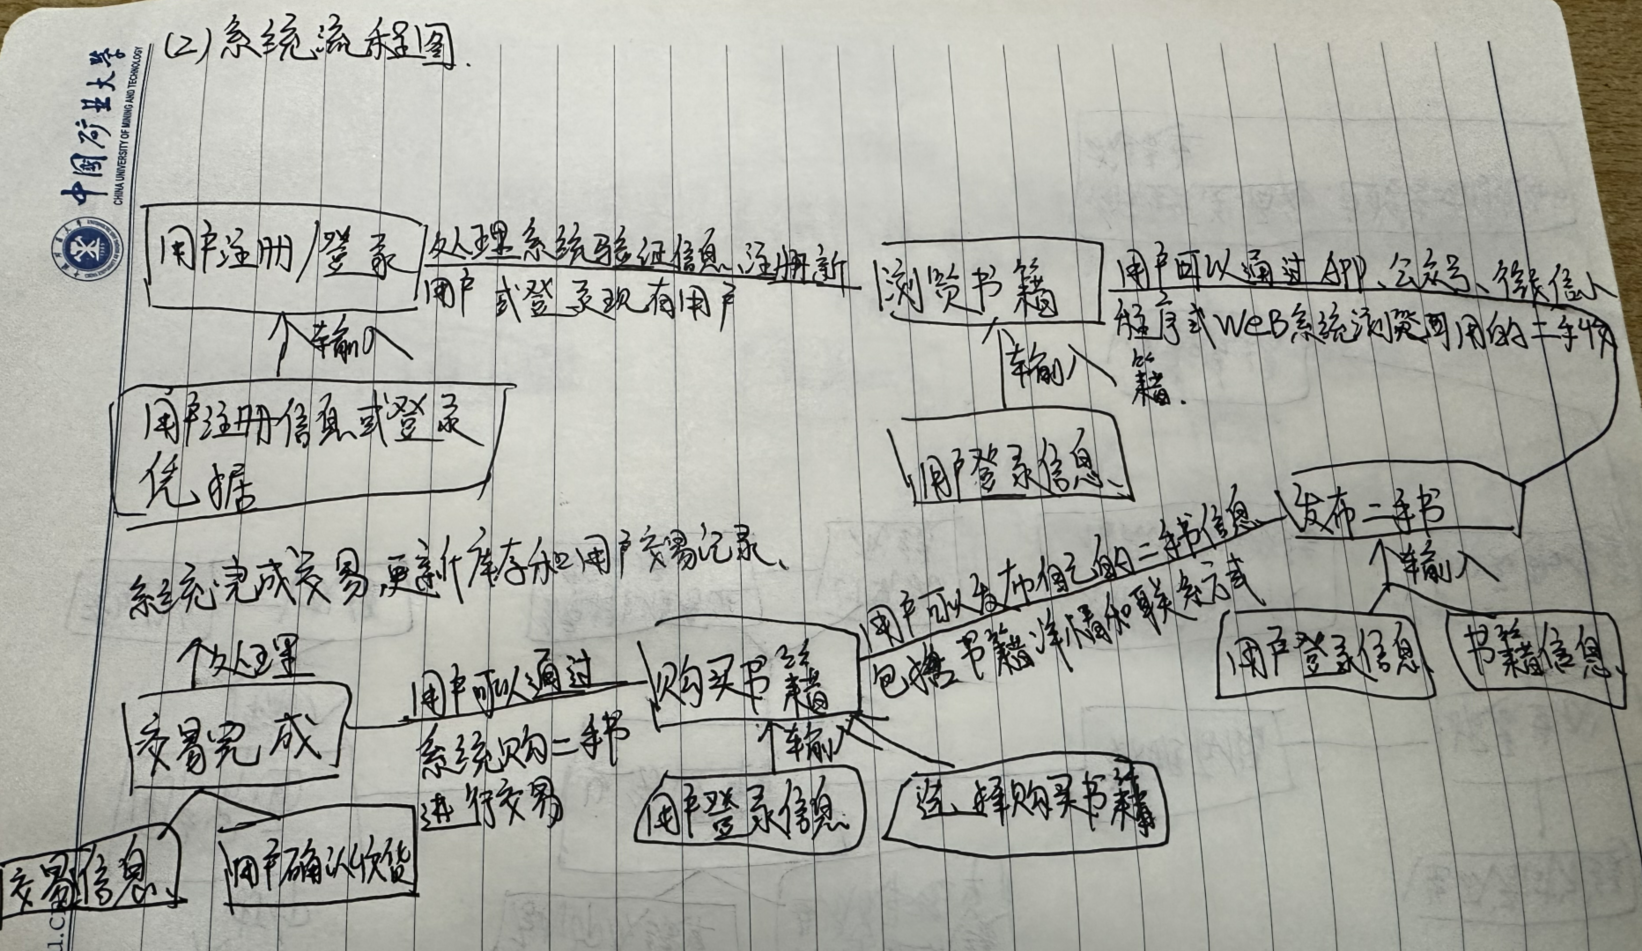 (2)系统流程图.
中国矿业大学
CHINA UNIVERSITY OF MINING AND TECHNOLOGY
用户注册/登录
处理系统验证信息、注册新
用户 或登录现有用户
浏览书籍
用户可以通过APP、公众号、微信小
程序或WeB系统浏览可用的二手书
籍.
输入
输入
用户注册信息或登录
凭据
用户登录信息、
发布二手书
输入
用户登录信息、
书籍信息、
用户可以发布自己的二手书信息
包括书籍详情和联系方式
系统完成交易,更新库存和用户交易记录、
处理
交易完成
用户可以通过
系统购二手书
进行交易
购买书籍
输入
用户登录信息.
选择购买书籍
交易信息、
用户确认收货
u.c